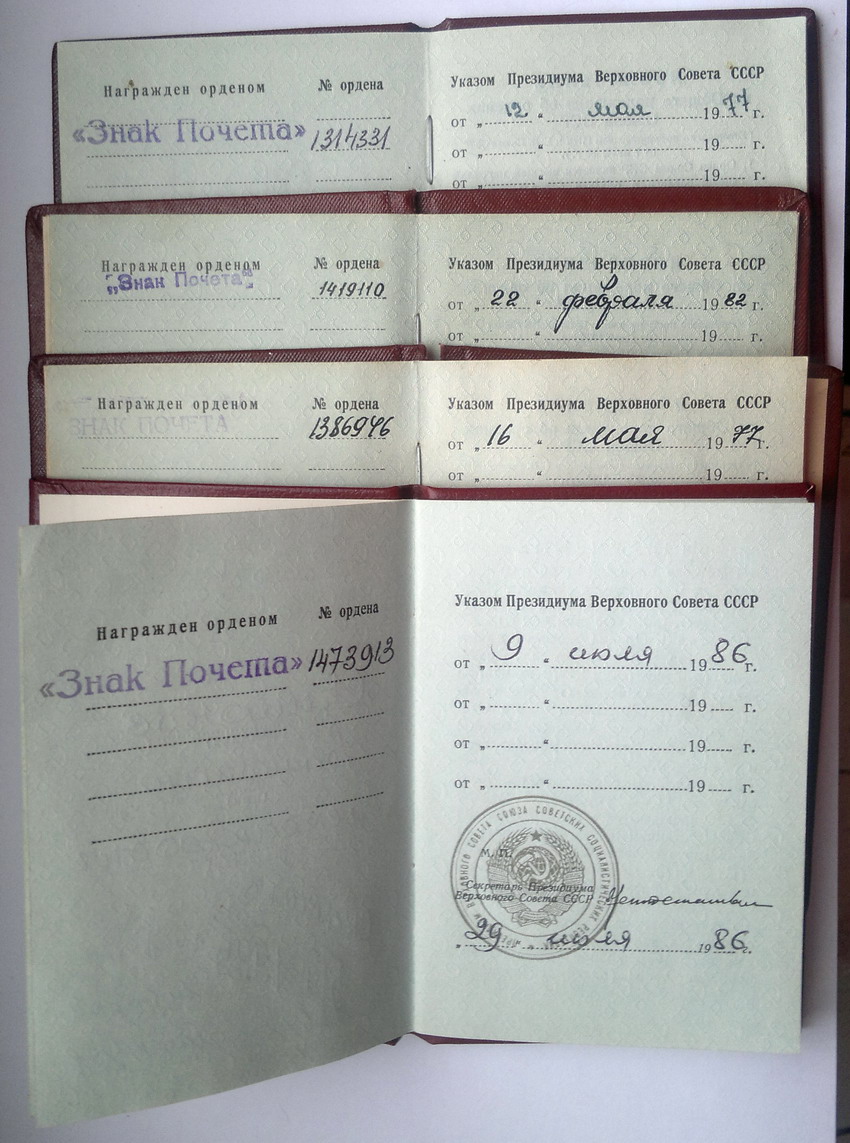 Награжден орденом № ордена
«Знак Почета» 1314331
Указом Президиума Верховного Совета СССР
от „ 12 “ мая 1977 г.
от „ “ 19 г.
от „ “ 19 г.
Награжден орденом № ордена
„Знак Почета“ 1419110
Указом Президиума Верховного Совета СССР
от „ 22 “ февраля 1982 г.
от „ “ 19 г.
Награжден орденом № ордена
ЗНАК ПОЧЕТА 1386946
Указом Президиума Верховного Совета СССР
от „ 16 “ мая 1977 г.
от „ “ 19 г.
Награжден орденом № ордена
«Знак Почета» 1473913
Указом Президиума Верховного Совета СССР
от „ 9 “ июля 1986 г.
от „ “ 19 г.
от „ “ 19 г.
от „ “ 19 г.
ВЕРХОВНОГО СОВЕТА СОЮЗА СОВЕТСКИХ СОЦИАЛИСТИЧЕСКИХ
М. П.
Секретарь Президиума
Верховного Совета СССР
„ 29 “ июля 1986 г.